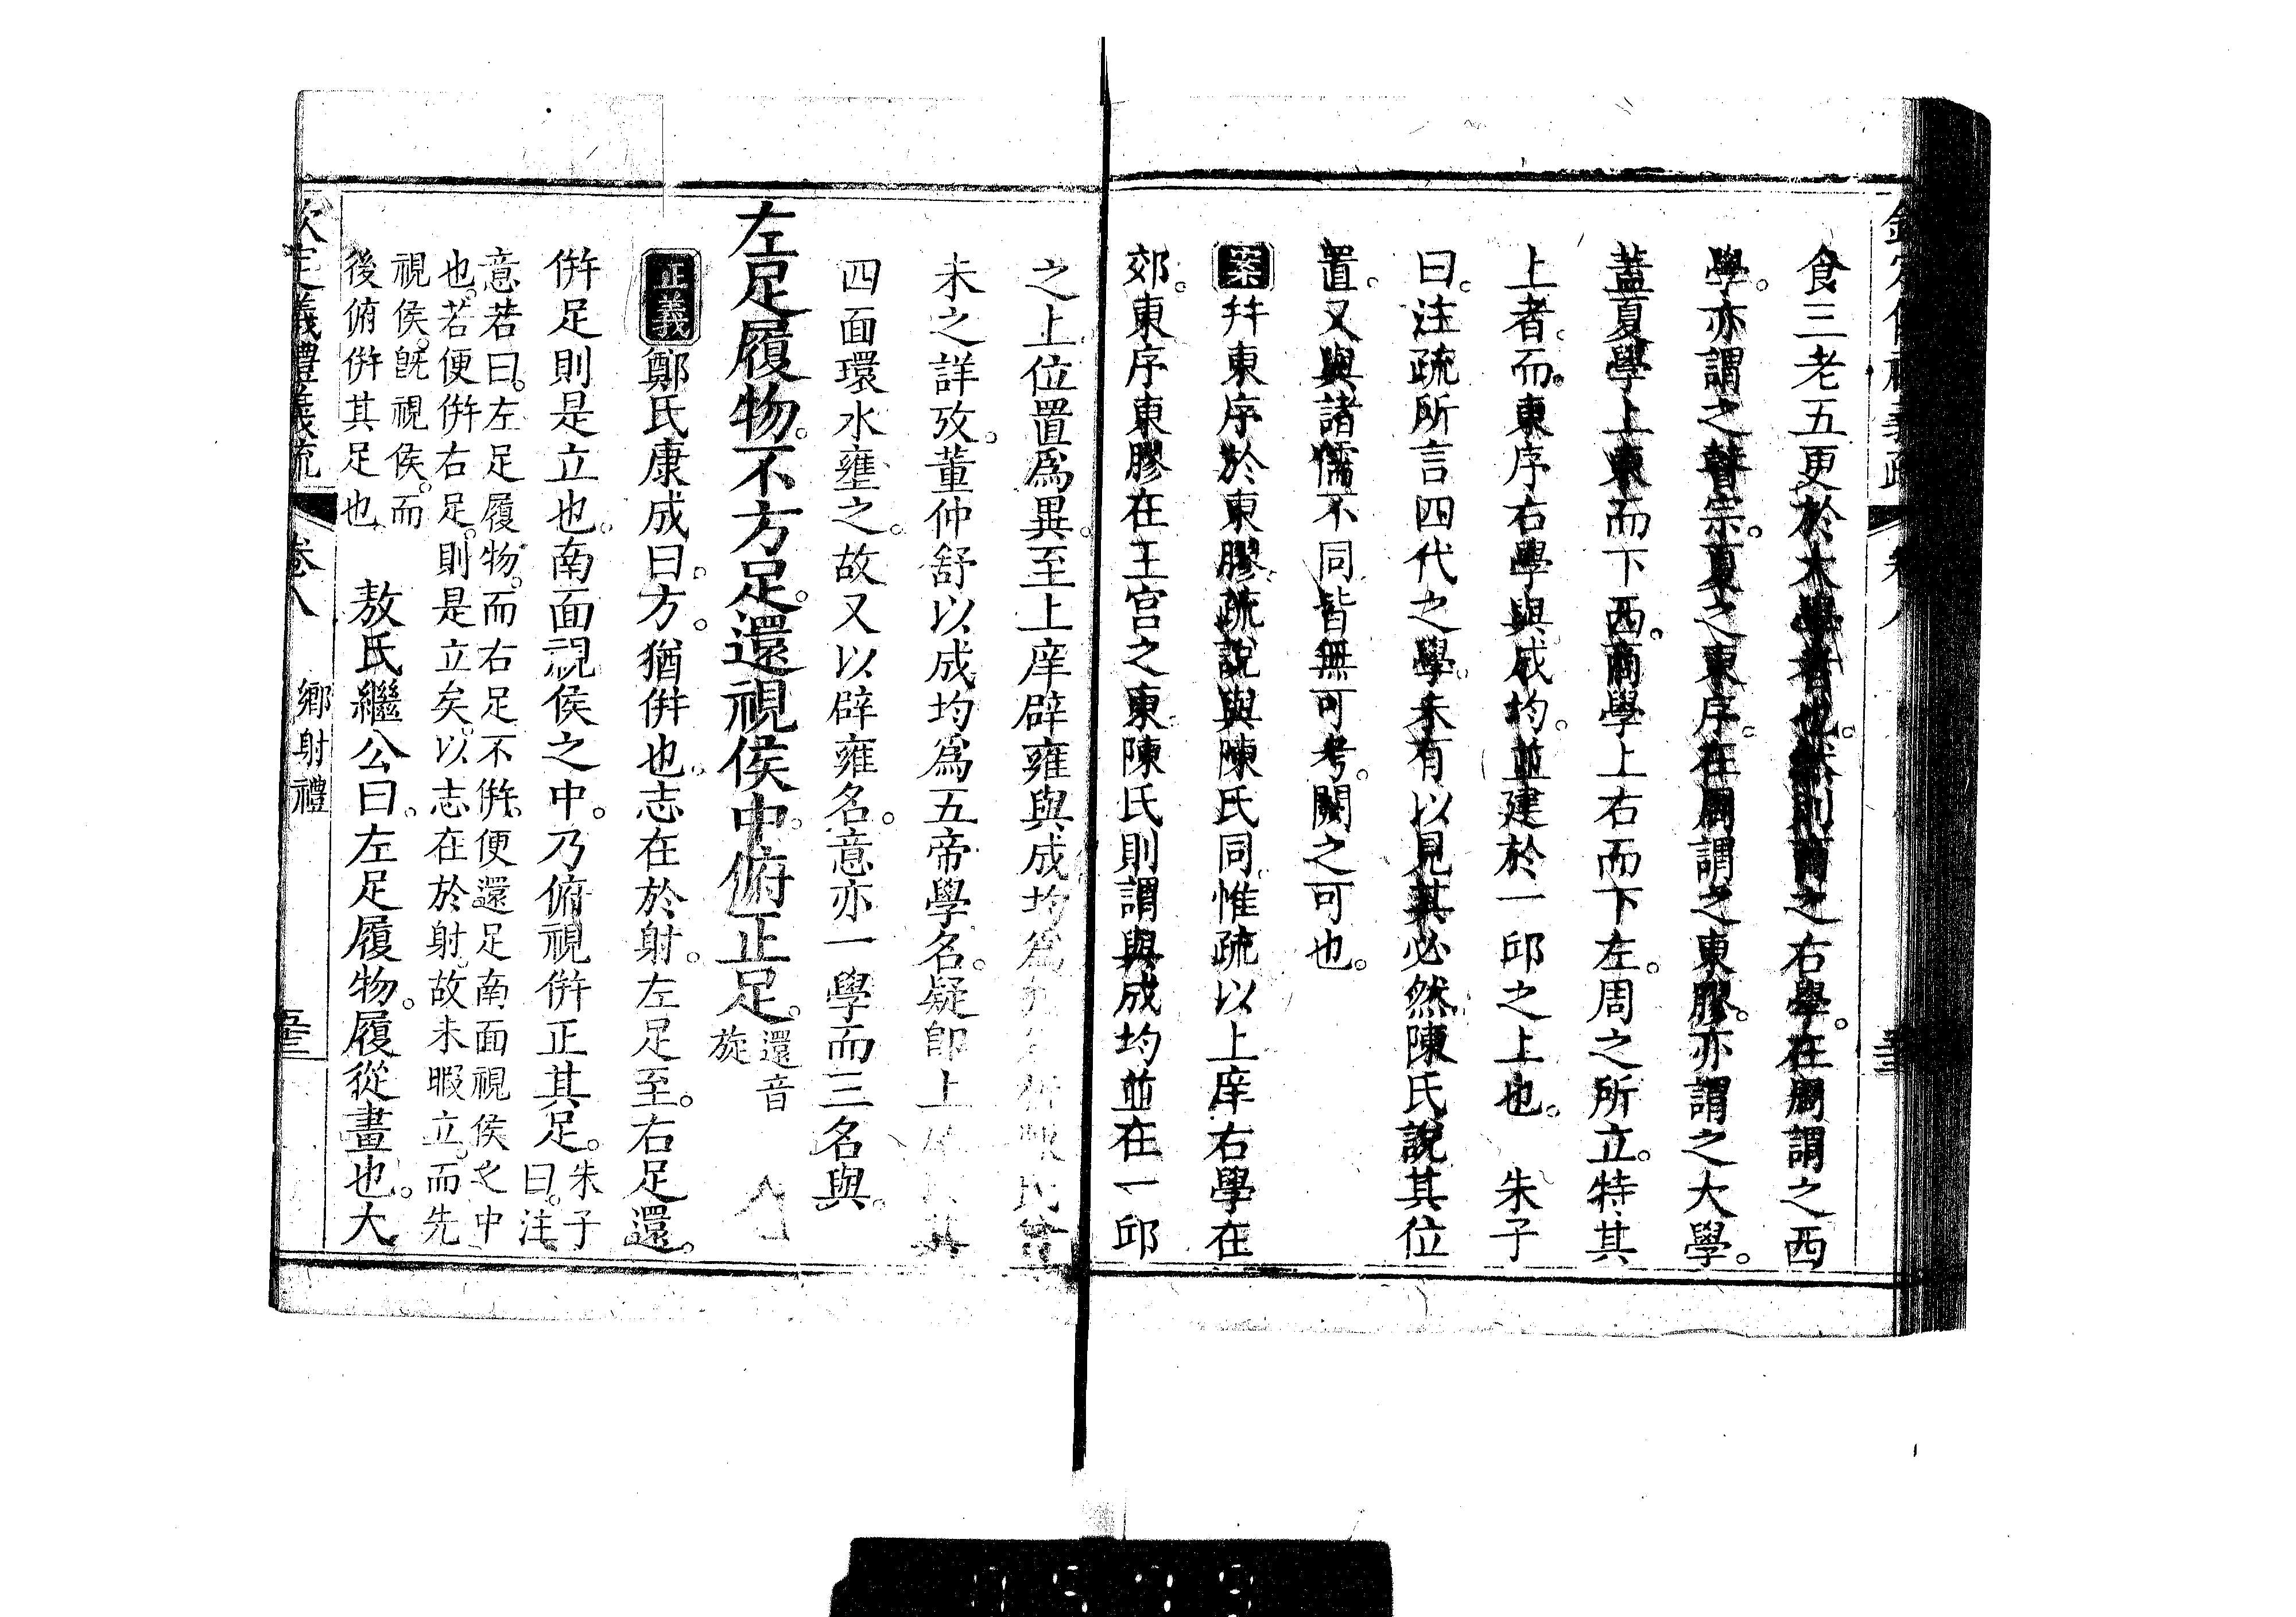 食三老五更於太學者也。然則商之右學。在周謂之西
學。亦謂之瞽宗。夏之東序。在周謂之東膠。亦謂之大學。
蓋夏學上東而下西。商學上右而下左。周之所立。特其
上者。而東序右學與成均。並建於一邱之上也。 朱子
曰。注疏所言四代之學。未有以見其必然。陳氏說其位
置。又與諸儒不同。皆無可考。闕之可也。
案 幷東序於東膠。疏說與陳氏同。惟疏以上庠右學在
郊。東序東膠在王宮之東。陳氏則謂與成均並在一邱
之上。位置爲異。至上庠辟雍與成均爲
未之詳攷。董仲舒以成均爲五帝學名。疑卽上其
四面環水壅之。故又以辟雍名。意亦一學而三名與。
左足履物。不方足。還視侯中。俯正足。還音旋
正義 鄭氏康成曰。方。猶倂也。志在於射。左足至。右足還。
倂足則是立也。南面視侯之中。乃俯視倂正其足。朱子曰。注
意若曰。左足履物。而右足不倂。便還足南面視侯之中
也。若便倂右足。則是立矣。以志在於射。故未暇立。而先
視侯。旣視侯。而
後俯倂其足也 敖氏繼公曰。左足履物。履從畫也。大
欽定儀禮義疏 卷八 鄉射禮